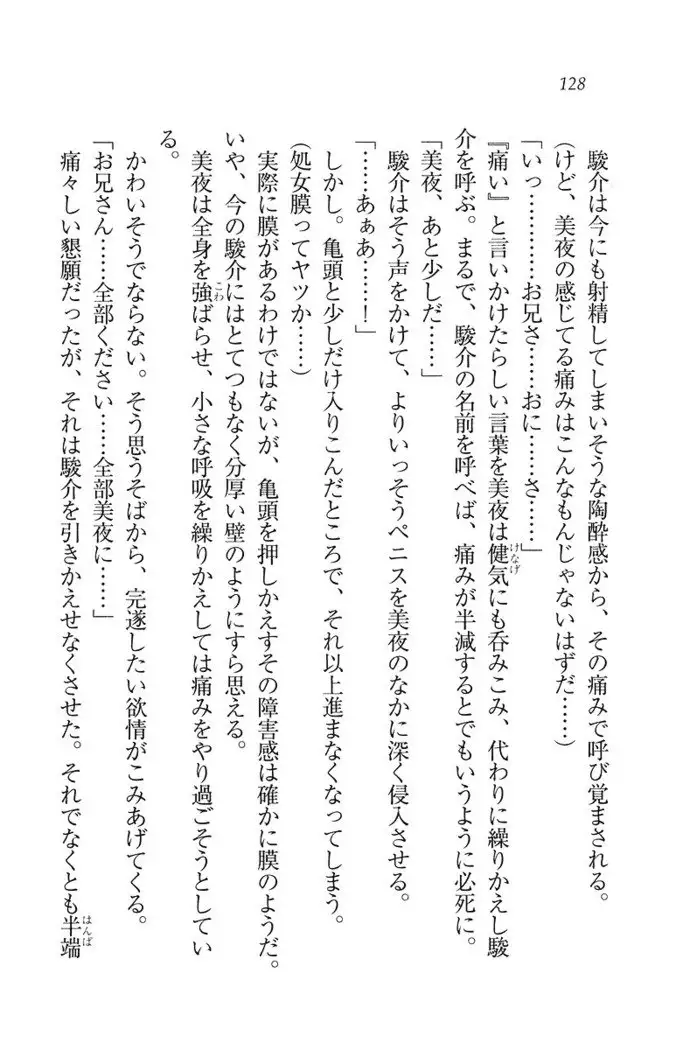 128
駿介は今にも射精してしまいそうな陶酔感から、その痛みで呼び覚まされる。
(けど、美夜の感じてる痛みはこんなもんじゃないはずだ……)
「いっ…………お兄さ……おに……さ……」
『痛い』と言いかけたらしい言葉を美夜は健気にも呑みこみ、代わりに繰りかえし駿
介を呼ぶ。まるで、駿介の名前を呼べば、痛みが半減するとでもいうように必死に。
「美夜、あと少しだ……」
駿介はそう声をかけて、よりいっそうペニスを美夜のなかに深く侵入させる。
「……あぁあ……！」
しかし。亀頭と少しだけ入りこんだところで、それ以上進まなくなってしまう。
(処女膜ってヤツか……)
実際に膜があるわけではないが、亀頭を押しかえすその障害感は確かに膜のようだ。
いや、今の駿介にはとてつもなく分厚い壁のようにすら思える。
美夜は全身を強ばらせ、小さな呼吸を繰りかえしては痛みをやり過ごそうとしてい
る。
かわいそうでならない。そう思うそばから、完遂したい欲情がこみあげてくる。
「お兄さん……全部ください……全部美夜に……」
痛々しい懇願だったが、それは駿介を引きかえせなくさせた。それでなくとも半端